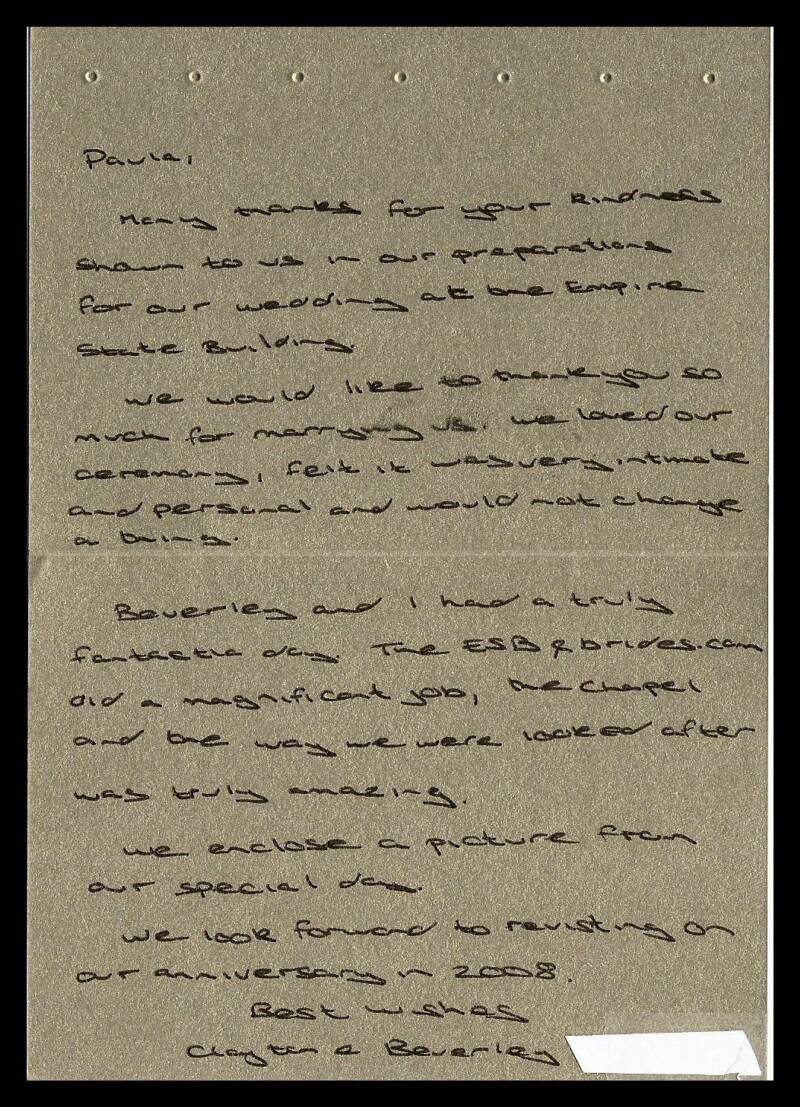 Paula,
Many thanks for your kindness
shown to us in our preparations
for our wedding at the Empire
State Building.
We would like to thankyou so
much for marrying us. We loved our
ceremony, felt it was very intimate
and personal and would not change
a thing.
Beverley and I had a truly
fantastic day. The ESB & brides.com
did a magnificant job, the chapel
and the way we were looked after
was truly amazing.
We enclose a picture from
our special day.
We look forward to revisting on
our anniversary in 2008.
Best wishes
Clayton & Beverley